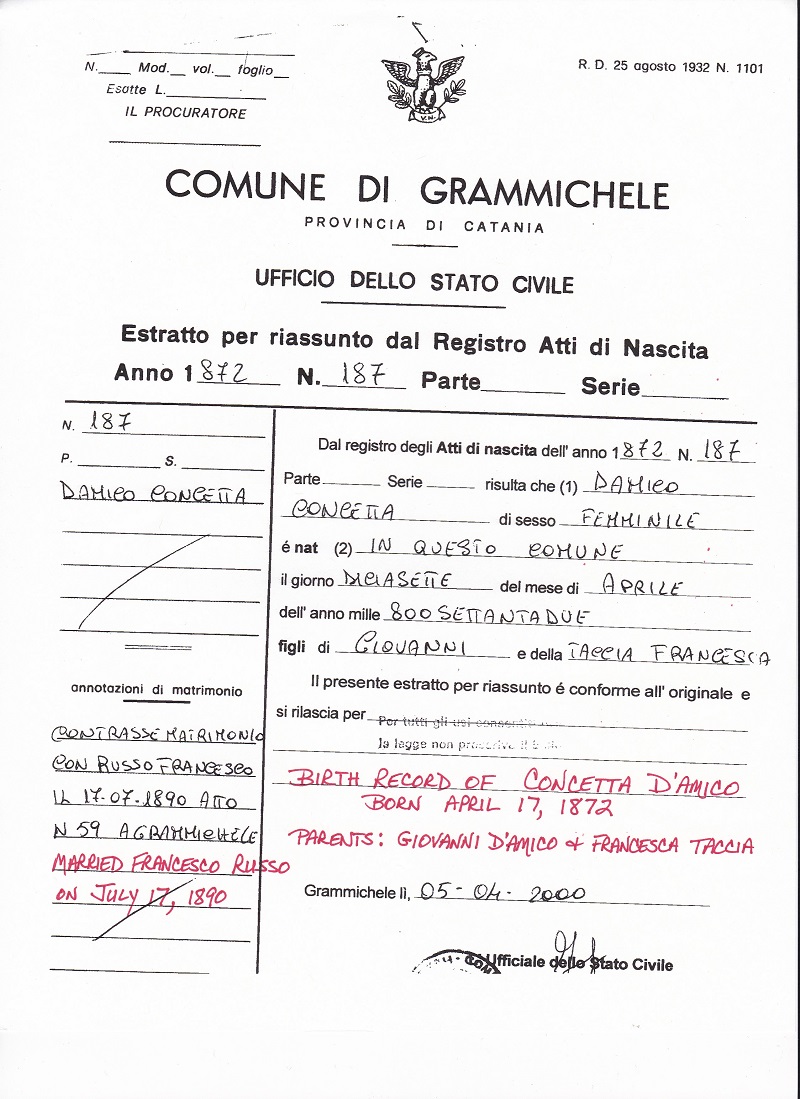 N.____ Mod.__ vol.__ foglio__
R. D. 25 agosto 1932 N. 1101
Esatte L.____________
IL PROCURATORE
V.N.
COMUNE DI GRAMMICHELE
PROVINCIA DI CATANIA
UFFICIO DELLO STATO CIVILE
Estratto per riassunto dal Registro Atti di Nascita
Anno 1872 N. 187 Parte______ Serie______
N. 187
P. __________ S. __________
DAMICO CONCETTA
annotazioni di matrimonio
CONTRASSE MATRIMONIO
CON RUSSO FRANCESCO
IL 17-07-1890 ATTO
N 59 A GRAMMICHELE
MARRIED FRANCESCO RUSSO
ON JULY 17, 1890
Dal registro degli Atti di nascita dell' anno 1872 N. 187
Parte______ Serie______ risulta che (1) DAMICO
CONCETTA di sesso FEMMINILE
é nat (2) IN QUESTO COMUNE
il giorno DICIASETTE del mese di APRILE
dell' anno mille 800SETTANTADUE
figli di GIOVANNI e della TACCIA FRANCESCA
Il presente estratto per riassunto é conforme all' originale e
si rilascia per Per tutti gli usi
la legge non
BIRTH RECORD OF CONCETTA D'AMICO
BORN APRIL 17, 1872
PARENTS: GIOVANNI D'AMICO & FRANCESCA TACCIA
Grammichele lì, 05-04-2000
Ufficiale dello Stato Civile